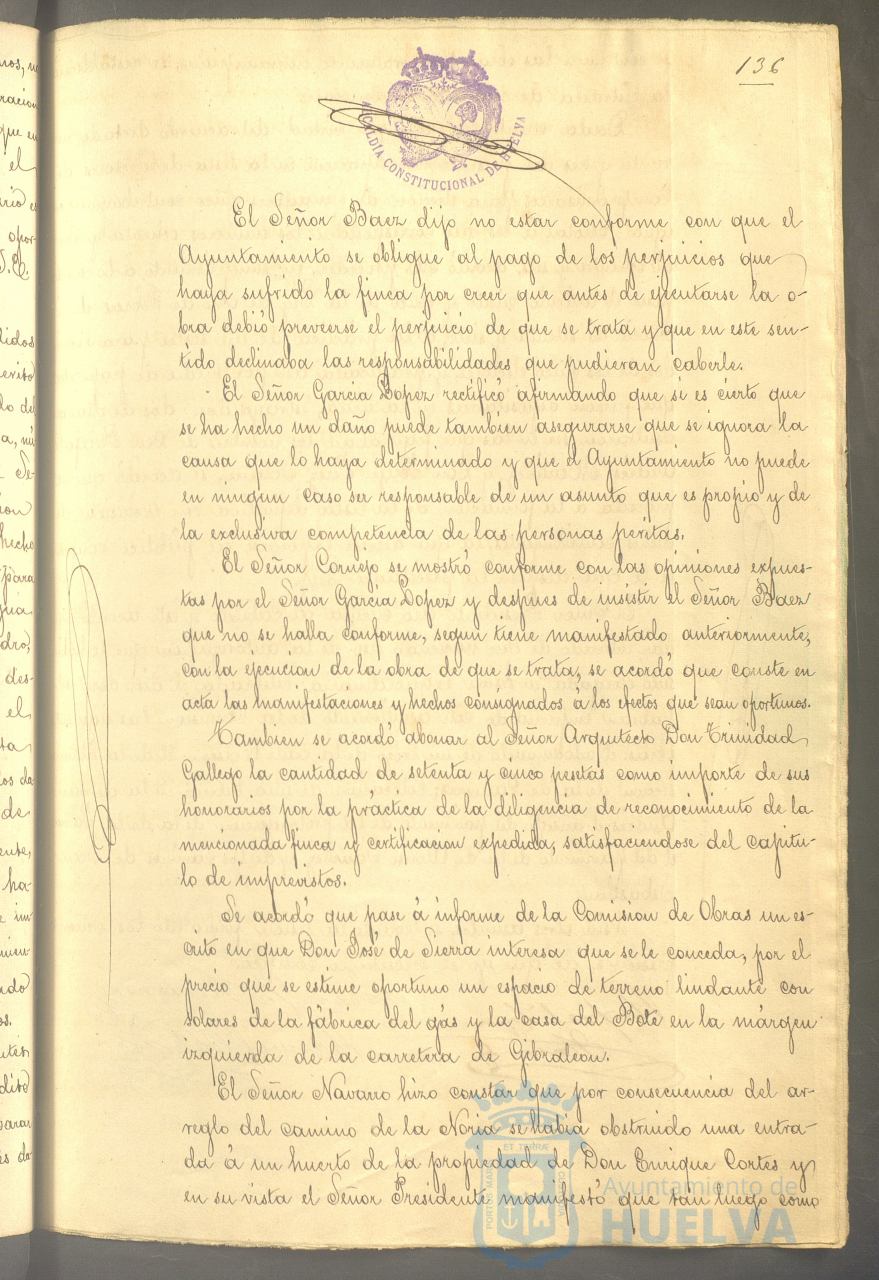 136
ALCALDIA CONSTITUCIONAL DE HUELVA
El Señor Baez dijo no estar conforme con que el
Ayuntamiento se obligue al pago de los perjuicios que
haya sufrido la finca por creer que antes de ejecutarse la o-
bra debió preveerse el perjuicio de que se trata y que en este sen-
tido declinaba las responsabilidades que pudieran caberle.
El Señor Garcia Lopez rectificó afirmando que si es cierto que
se ha hecho un daño puede tambien asegurarse que se ignora la
causa que lo haya determinado y que el Ayuntamiento no puede
en ningun caso ser responsable de un asunto que es propio y de
la exclusiva competencia de las personas peritas.
El Señor Cornejo se mostró conforme con las opiniones expues-
tas por el Señor Garcia Lopez y despues de insistir el Señor Baez
que no se halla conforme, segun tiene manifestado anteriormente,
con la ejecucion de la obra de que se trata, se acordó que conste en
acta las manifestaciones y hechos consignados á los efectos que sean oportunos.
Tambien se acordó abonar al Señor Arquitecto Don Trinidad
Gallego la cantidad de setenta y cinco pesetas como importe de sus
honorarios por la práctica de la diligencia de reconocimiento de la
mencionada finca y certificacion expedida, satisfaciendose del capitu-
lo de imprevistos.
Se acordó que pase á informe de la Comision de Obras un es-
crito en que Don José de Sierra interesa que se le conceda, por el
precio que se estime oportuno un espacio de terreno lindante con
solares de la fábrica del gás y la casa del Bote en la márgen
izquierda de la carretera de Gibraleon.
El Señor Navarro hizo constar que por consecuencia del ar-
reglo del camino de la Noria se habia obstruido una entra-
da á un huerto de la propiedad de Don Enrique Cortes y
en su vista el Señor Presidente manifestó que tan luego como
Ayuntamiento de
HUELVA